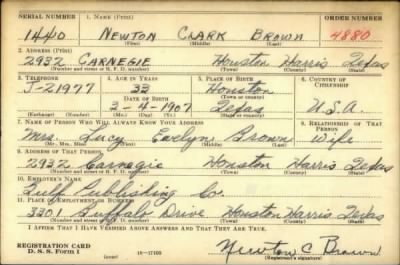 SERIAL NUMBER 1. NAME (Print) ORDER NUMBER
1440 NEWTON CLARK BROWN 4880
(First) (Middle) (Last)
2. ADDRESS (Print)
2932 CARNEGIE Houston Harris Texas
(Number and street or R. F. D. number) (Town) (County) (State)
3. TELEPHONE 4. AGE IN YEARS 5. PLACE OF BIRTH 6. COUNTRY OF CITIZENSHIP
J-21977 33 Houston
DATE OF BIRTH (Town or county)
2-4-1907 Texas U.S.A.
(Exchange) (Number) (Mo.) (Day) (Yr.) (State or country)
7. NAME OF PERSON WHO WILL ALWAYS KNOW YOUR ADDRESS 8. RELATIONSHIP OF THAT PERSON
Mrs. Lucy Evelyn Brown Wife
(Mr., Mrs., Miss) (First) (Middle) (Last)
9. ADDRESS OF THAT PERSON
2932 Carnegie Houston Harris Texas
(Number and street or R. F. D. number) (Town) (County) (State)
10. EMPLOYER'S NAME
Gulf Publishing Co.
11. PLACE OF EMPLOYMENT OR BUSINESS
3301 Buffalo Drive Houston Harris Texas
(Number and street or R. F. D. number) (Town) (County) (State)
I AFFIRM THAT I HAVE VERIFIED ABOVE ANSWERS AND THAT THEY ARE TRUE.
REGISTRATION CARD
D. S. S. Form 1 (over) Newton C Brown
(Registrant's signature)